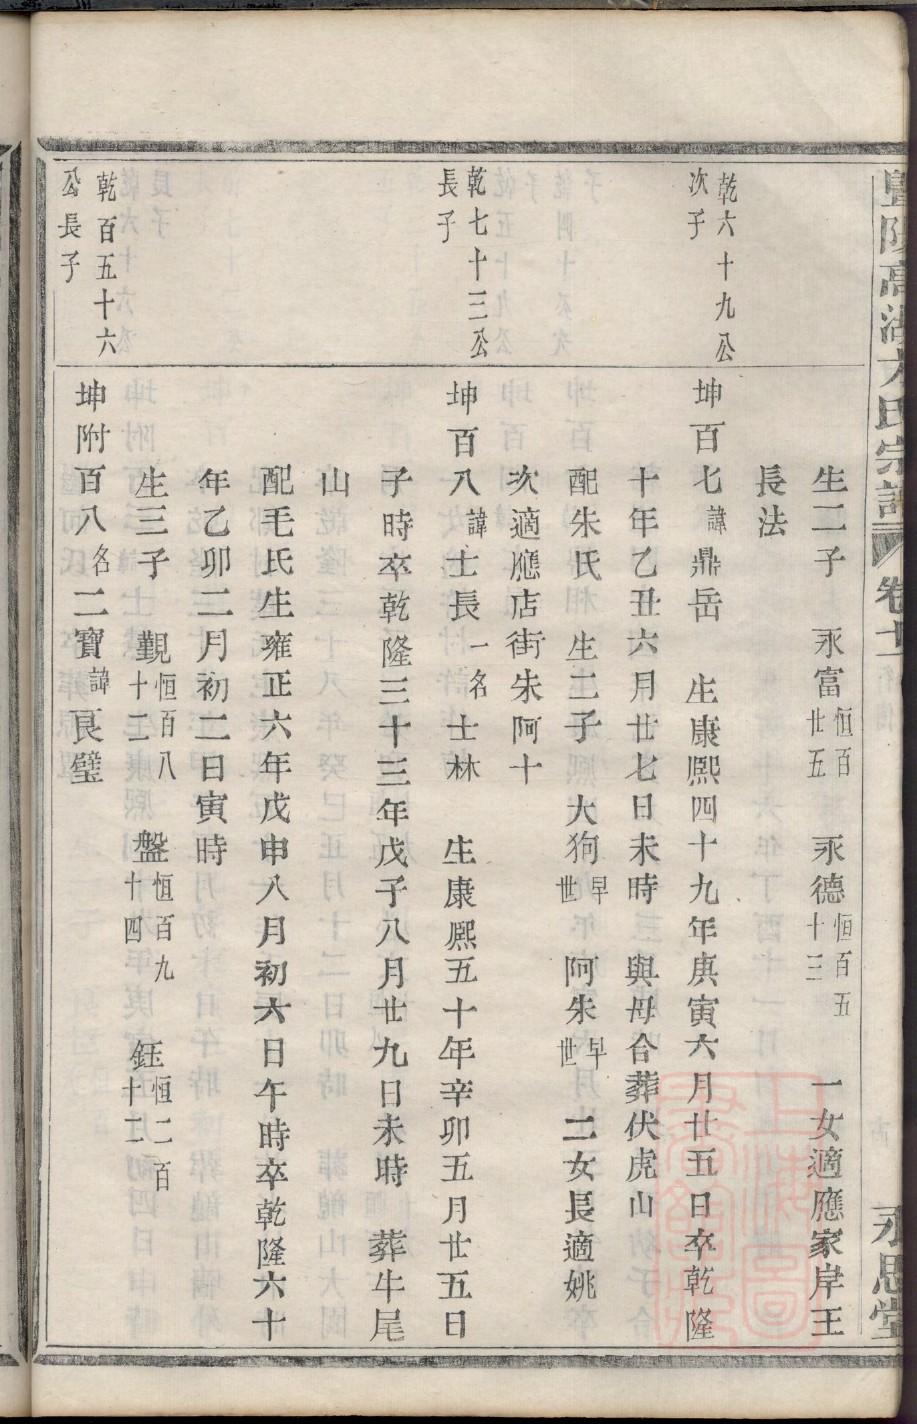 暨陽高湖方氏宗譜 卷十 永思堂
生二子 永富恒百廿五 永德恒百五十三 一女適應家岸王
長法
乾六十九公次子
坤百七諱鼎岳 生康熙四十九年庚寅六月廿五日卒乾隆
十年乙丑六月廿七日未時與母合葬伏虎山
配朱氏 生二子 大狗早世 阿朱早世 二女長適姚
次適應店街朱阿十
乾七十三公長子
坤百八諱士長一名士林 生康熙五十年辛卯五月廿五日
子時卒乾隆三十三年戊子八月廿九日未時 葬牛尾
山
配毛氏生雍正六年戊申八月初六日午時卒乾隆六十
年乙卯二月初二日寅時
生三子 觀恒百八十二 盤恒百九十四 鈺恒二百十二
乾百五十六公長子
坤附百八名二寶諱良璧